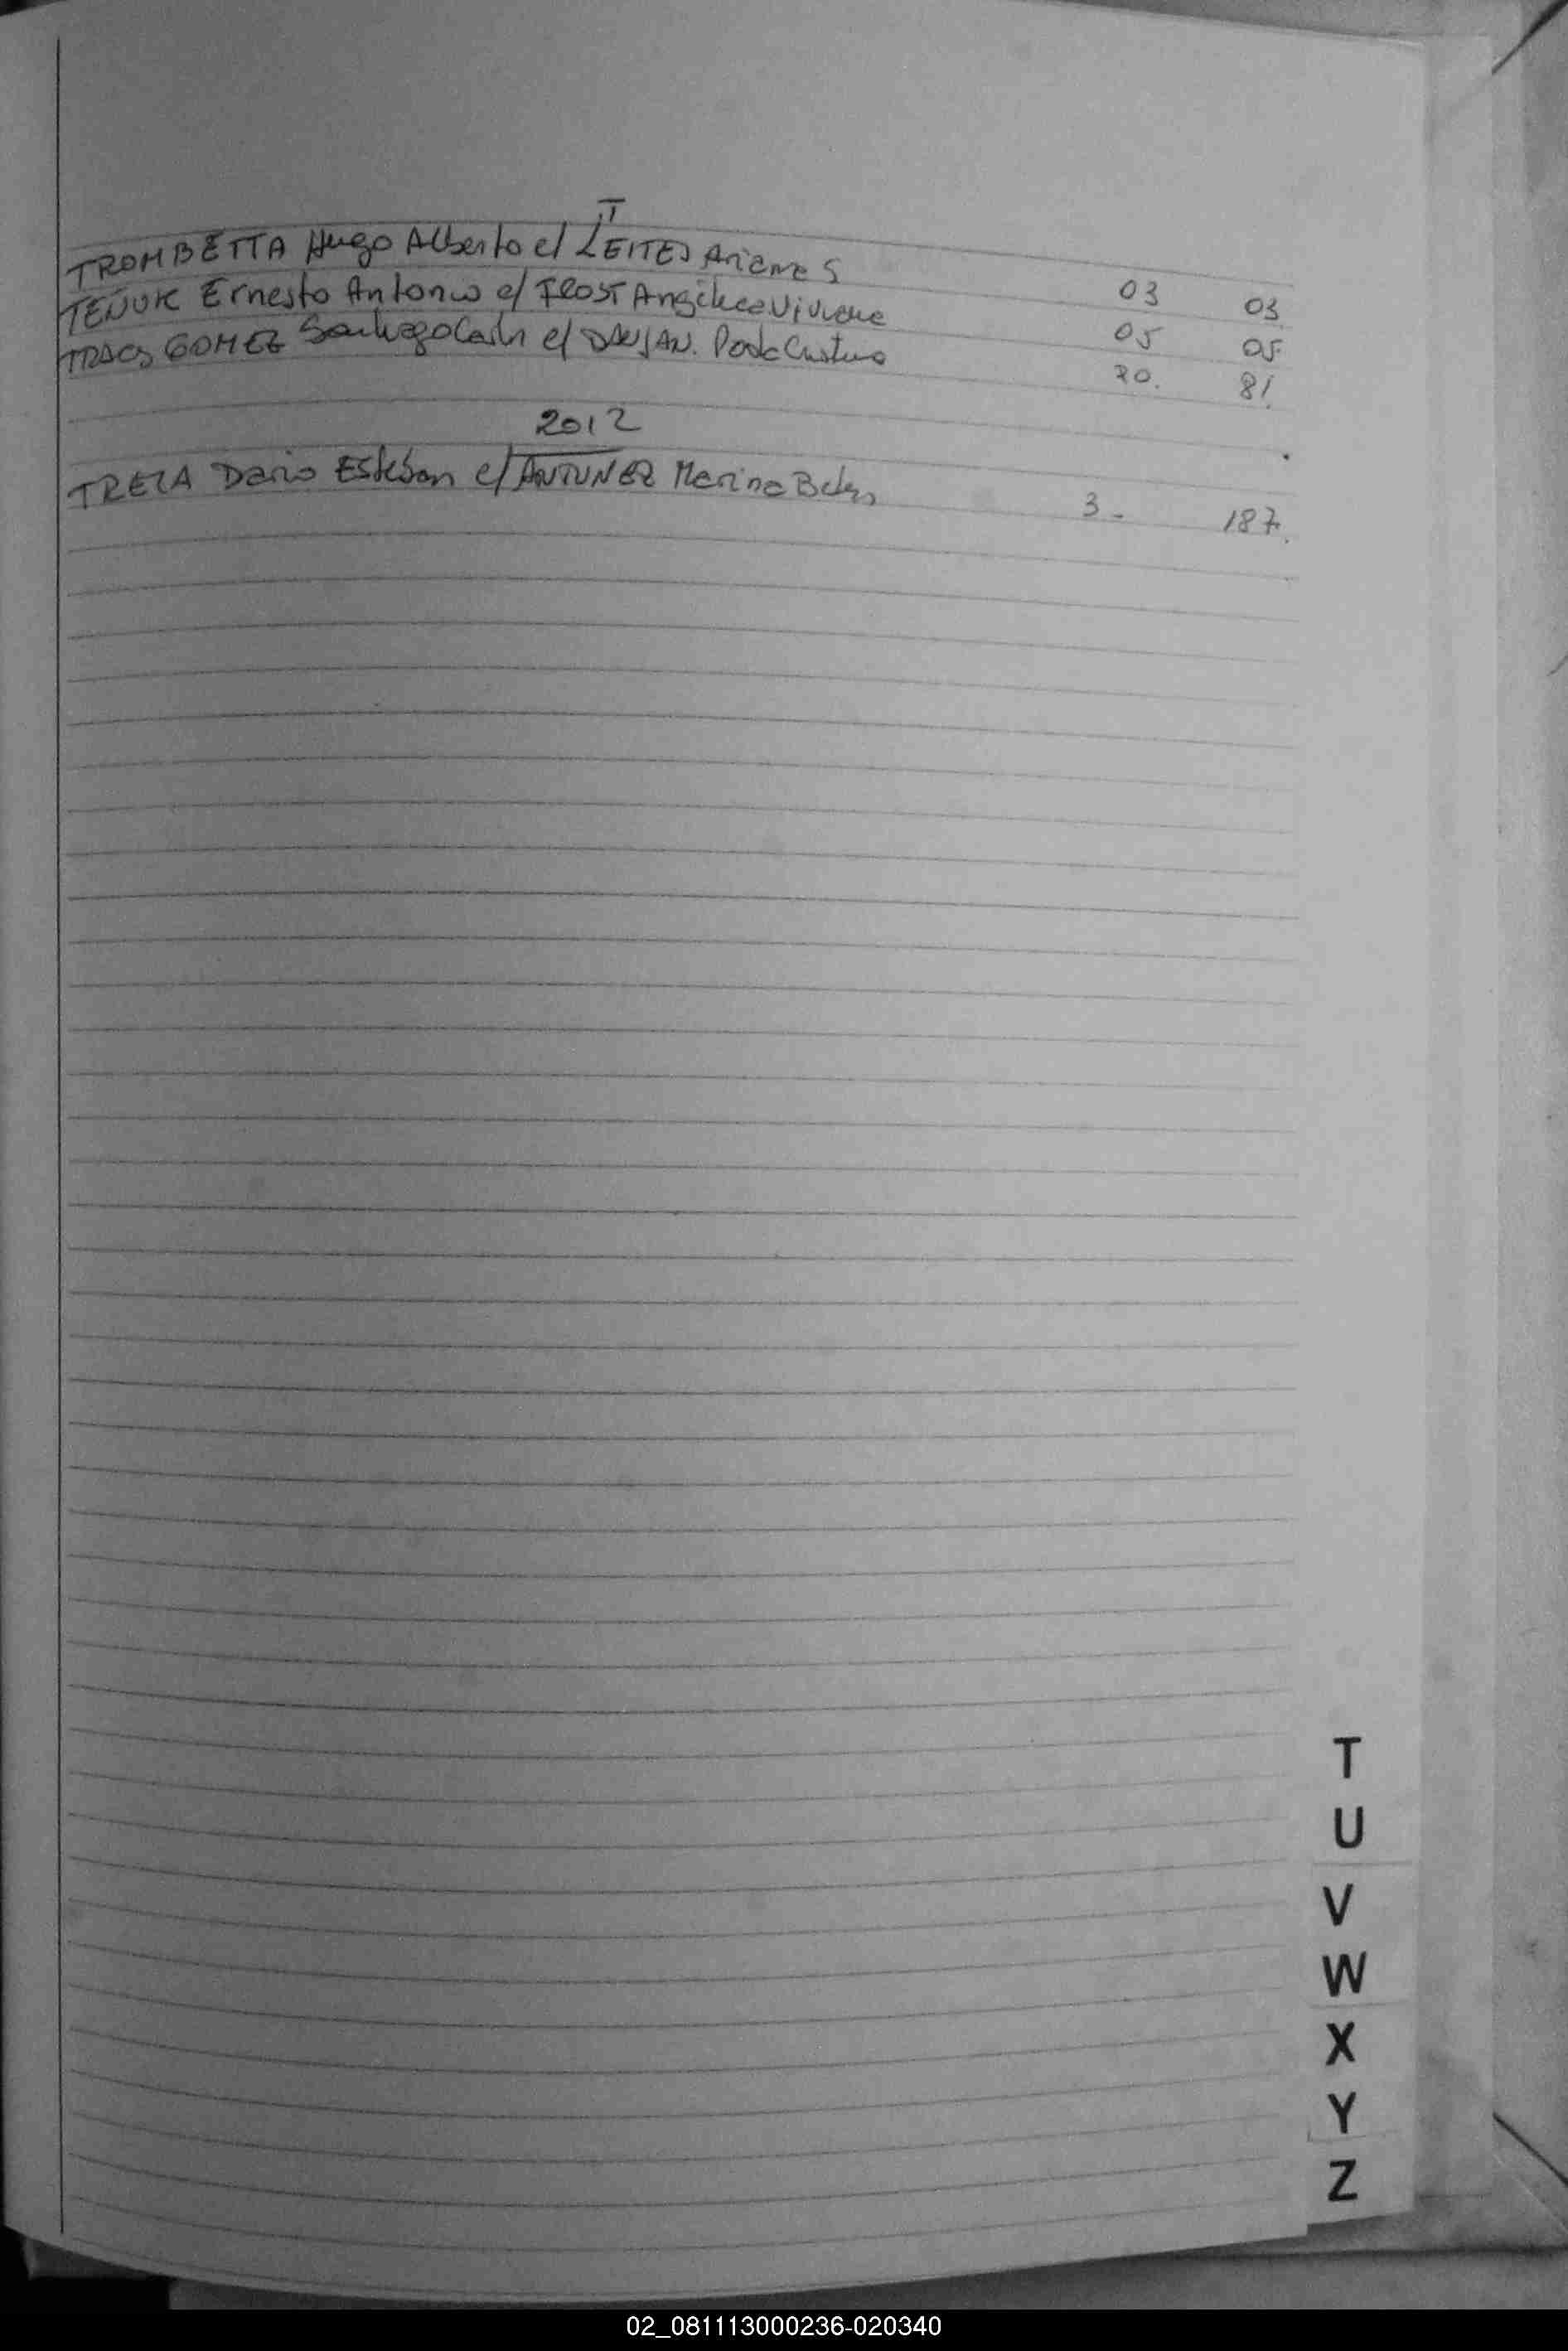 T
TROMBETTA Hugo Alberto c/ LEITES Ariana S 03 03
TENUK Ernesto Antonio c/ FROST Angélica Viviana 05 05
GOMEZ Santiago c/ 20. 81.
2012
TREZA Dario Esteban c/ ANTUNEZ Marina Belen 3- 187.
T
U
V
W
X
Y
Z
02_081113000236-020340